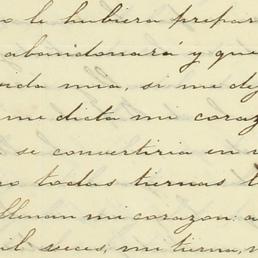 o le hubiera prepar
abandonará y que
vida mia, si me dej
me dicta mi coraz
se convertiria en
ro todas tiernas
llenan mi corazon: a
mil veces, mi tierna,